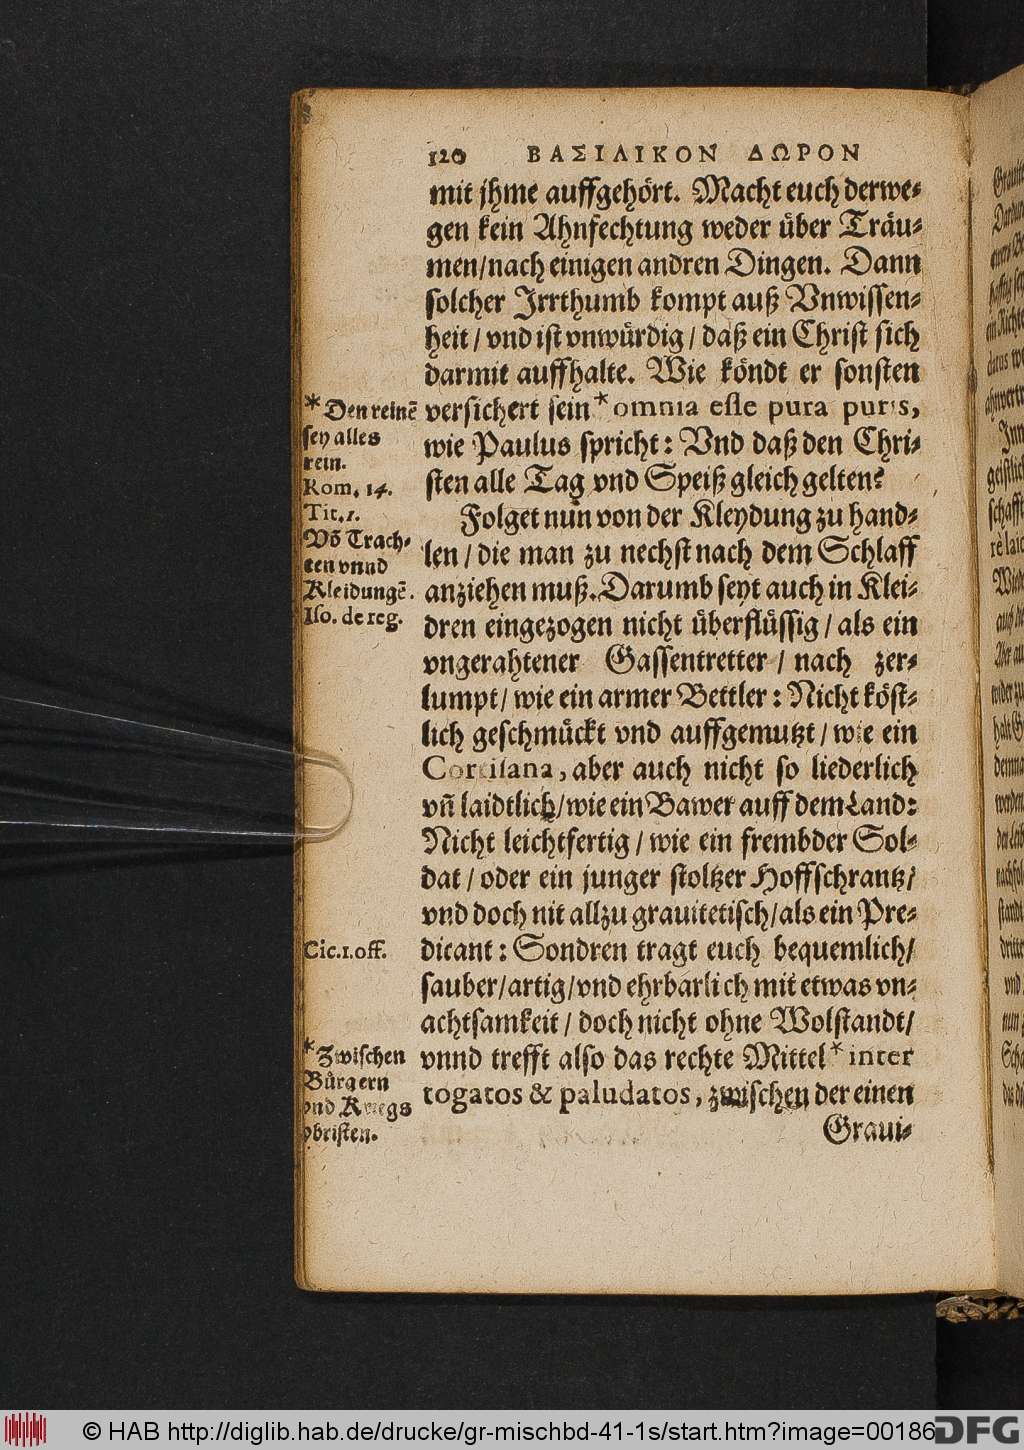 120 ΒΑΣΙΛΙΚΟΝ ΔΩΡΟΝ
mit jhme auffgehört. Macht euch derwe-
gen kein Ahnfechtung weder über Träu-
men/nach einigen andren Dingen. Dann
solcher Irrthumb kompt auß Vnwissen-
heit / vnd ist vnwürdig / daß ein Christ sich
darmit auffhalte. Wie köndt er sonsten
versichert sein * omnia esse pura puris,
wie Paulus spricht: Vnd daß den Chri-
sten alle Tag vnd Speiß gleich gelten?
Folget nun von der Kleydung zu hand-
len / die man zu nechst nach dem Schlaff
anziehen muß. Darumb seyt auch in Klei-
dren eingezogen nicht überflüssig / als ein
vngerahtener Gassentretter / nach zer-
lumpt / wie ein armer Bettler : Nicht köst-
lich geschmückt vnd auffgemutzt / wie ein
Cortisana, aber auch nicht so liederlich
vñ laidtlich/wie ein Bawer auff dem Land:
Nicht leichtfertig / wie ein frembder Sol-
dat / oder ein junger stoltzer Hoffschrantz/
vnd doch nit allzu grauitetisch/als ein Pre-
dicant : Sondren tragt euch bequemlich/
sauber/artig/vnd ehrbarlich mit etwas vn-
achtsamkeit / doch nicht ohne Wolstandt/
vnnd trefft also das rechte Mittel * inter
togatos & paludatos, zwischen der einen
Graui-
* Den reinẽ
sey alles
rein.
Rom. 14.
Tit. 1.
Võ Trach-
ten vnnd
Kleidungẽ.
Iso. de reg.
Cic. 1. off.
* Zwischen
Bürgern
vnd Kriegs
obristen.
© HAB http://diglib.hab.de/drucke/gr-mischbd-41-1s/start.htm?image=00186
DFG